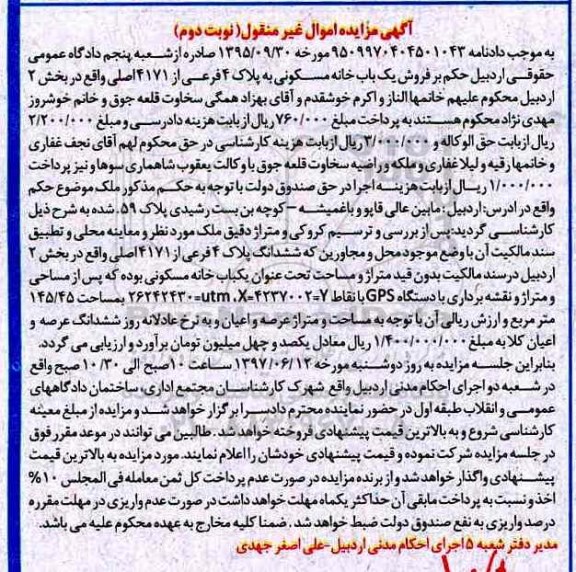 آگهی مزایده اموال غیر منقول (نوبت دوم)
به موجب دادنامه ۹۵۰۹۹۷۰۴۰۴۵۰۱۰۴۳ مورخه ۱۳۹۵/۰۹/۳۰ صادره از شعبه پنجم دادگاه عمومی
حقوقی اردبیل حکم بر فروش یک باب خانه مسکونی به پلاک ۴ فرعی از ۴۱۷۱ اصلی واقع در بخش ۲
اردبیل محکوم علیهم خانمها الناز و اکرم خوشقدم و آقای بهزاد همگی سخاوت قلعه جوق و خانم خوشروز
مهدی نژاد محکوم هستند به پرداخت مبلغ ۷۶۰/۰۰۰ ریال از بابت هزینه دادرسی و مبلغ ۲/۲۰۰/۰۰۰
ریال از بابت حق الوکاله و ۳/۰۰۰/۰۰۰ ریال از بابت هزینه کارشناسی در حق محکوم لهم آقای نجف غفاری
و خانمها رقیه و لیلا غفاری و ملکه و راضیه سخاوت قلعه جوق با وکالت یعقوب شاهماری سوها و نیز پرداخت
۱/۰۰۰/۰۰۰ ریال از بابت هزینه اجرا در حق صندوق دولت با توجه به حکم مذکور ملک موضوع حکم
واقع در ادرس: اردبیل: مابین عالی قاپو و باغمیشه – کوچه بن بست رشیدی پلاک ۵۹. شده به شرح ذیل
کارشناسی گردید: پس از بررسی و ترسیم کروکی و متراژ دقیق ملک مورد نظر و معاینه محلی و تطبیق
سند مالکیت آن با وضع موجود محل و مجاورین که ششدانگ پلاک ۴ فرعی از ۴۱۷۱ اصلی واقع در بخش ۲
اردبیل در سند مالکیت بدون قید متراژ و مساحت تحت عنوان یکباب خانه مسکونی بوده که پس از مساحی
و متراژ و نقشه برداری با دستگاه GPS با نقاط utm ،X=۴۲۳۷۰۰۲=۷=۲۶۲۴۲۴۳۰ بمساحت ۱۴۵/۴۵
متر مربع و ارزش ریالی آن با توجه به مساحت و متراژ عرصه و اعیان و به نرخ عادلانه روز ششدانگ عرصه و
اعیان کلا به مبلغ ۱/۴۰۰/۰۰۰/۰۰۰ ریال معادل یکصد و چهل میلیون تومان برآورد و ارزیابی می گردد.
بنابراین جلسه مزایده به روز دوشنبه مورخه ۱۳۹۷/۰۶/۱۲ ساعت ۱۰ صبح الی ۱۰/۳۰ صبح واقع
در شعبه دو اجرای احکام مدنی اردبیل واقع شهرک کارشناسان مجتمع اداری، ساختمان دادگاههای
عمومی و انقلاب طبقه اول در حضور نماینده محترم دادسرا برگزار خواهد شد و مزایده از مبلغ معینه
کارشناسی شروع و به بالاترین قیمت پیشنهادی فروخته خواهد شد. طالبین می توانند در موعد مقرر فوق
در جلسه مزایده شرکت نموده و قیمت پیشنهادی خودشان را اعلام نمایند. مورد مزایده به بالاترین قیمت
پیشنهادی واگذار خواهد شد و از برنده مزایده در صورت عدم پرداخت کل ثمن معامله فی المجلس ۱۰%
اخذ و نسبت به پرداخت مابقی آن حداکثر یکماه مهلت خواهد داشت در صورت عدم واریزی در مهلت مقرره
درصد واریزی به نفع صندوق دولت ضبط خواهد شد. ضمنا کلیه مخارج به عهده محکوم علیه می باشد.
مدیر دفتر شعبه ۵ اجرای احکام مدنی اردبیل - علی اصغر جهدی